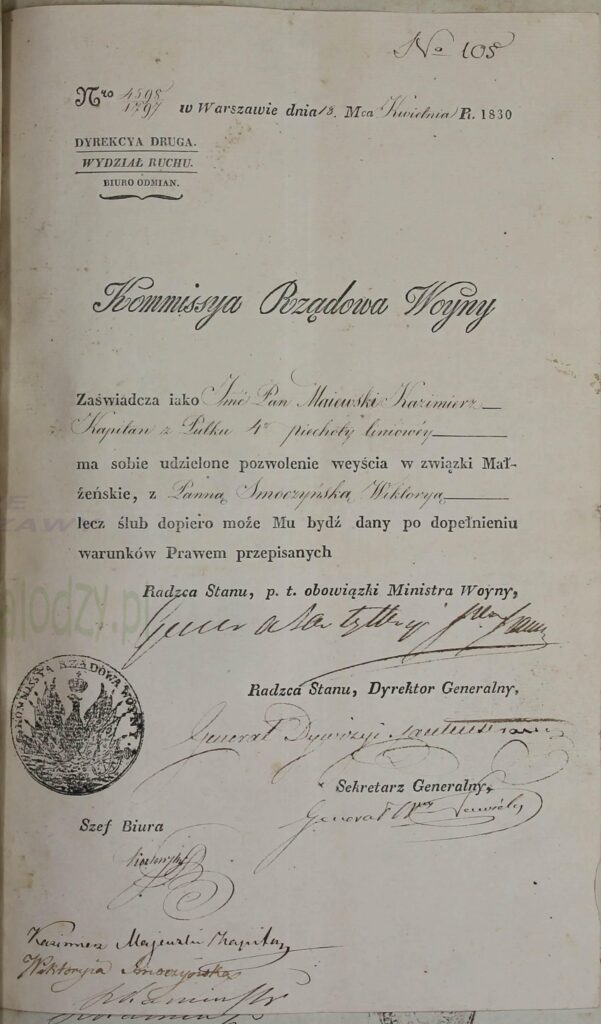 No 105
Nro 4598
1797 w Warszawie dnia 18. Mca Kwietnia R. 1830
DYREKCYA DRUGA.
WYDZIAŁ RUCHU.
BIURO ODMIAN.
Kommissya Rządowa Woyny
Zaświadcza iako Jmć Pan Maiewski Kazimierz
Kapitan z Pułku 4o piechoty liniowéy
ma sobie udzielone pozwolenie weyścia w związki Mał-
żeńskie, z Panną Smoczyńską Wiktoryą
lecz ślub dopiero może Mu bydź dany po dopełnieniu
warunków Prawem przepisanych
Radzca Stanu, p. t. obowiązki Ministra Woyny,
KOMMISSYA RZĄDOWA WOYNY
Radzca Stanu, Dyrektor Generalny,
Generał Dywizyi
Sekretarz Generalny,
Generał
Szef Biura
Kazimierz Majewski Kapitan
Wiktoryia Smoczyńska